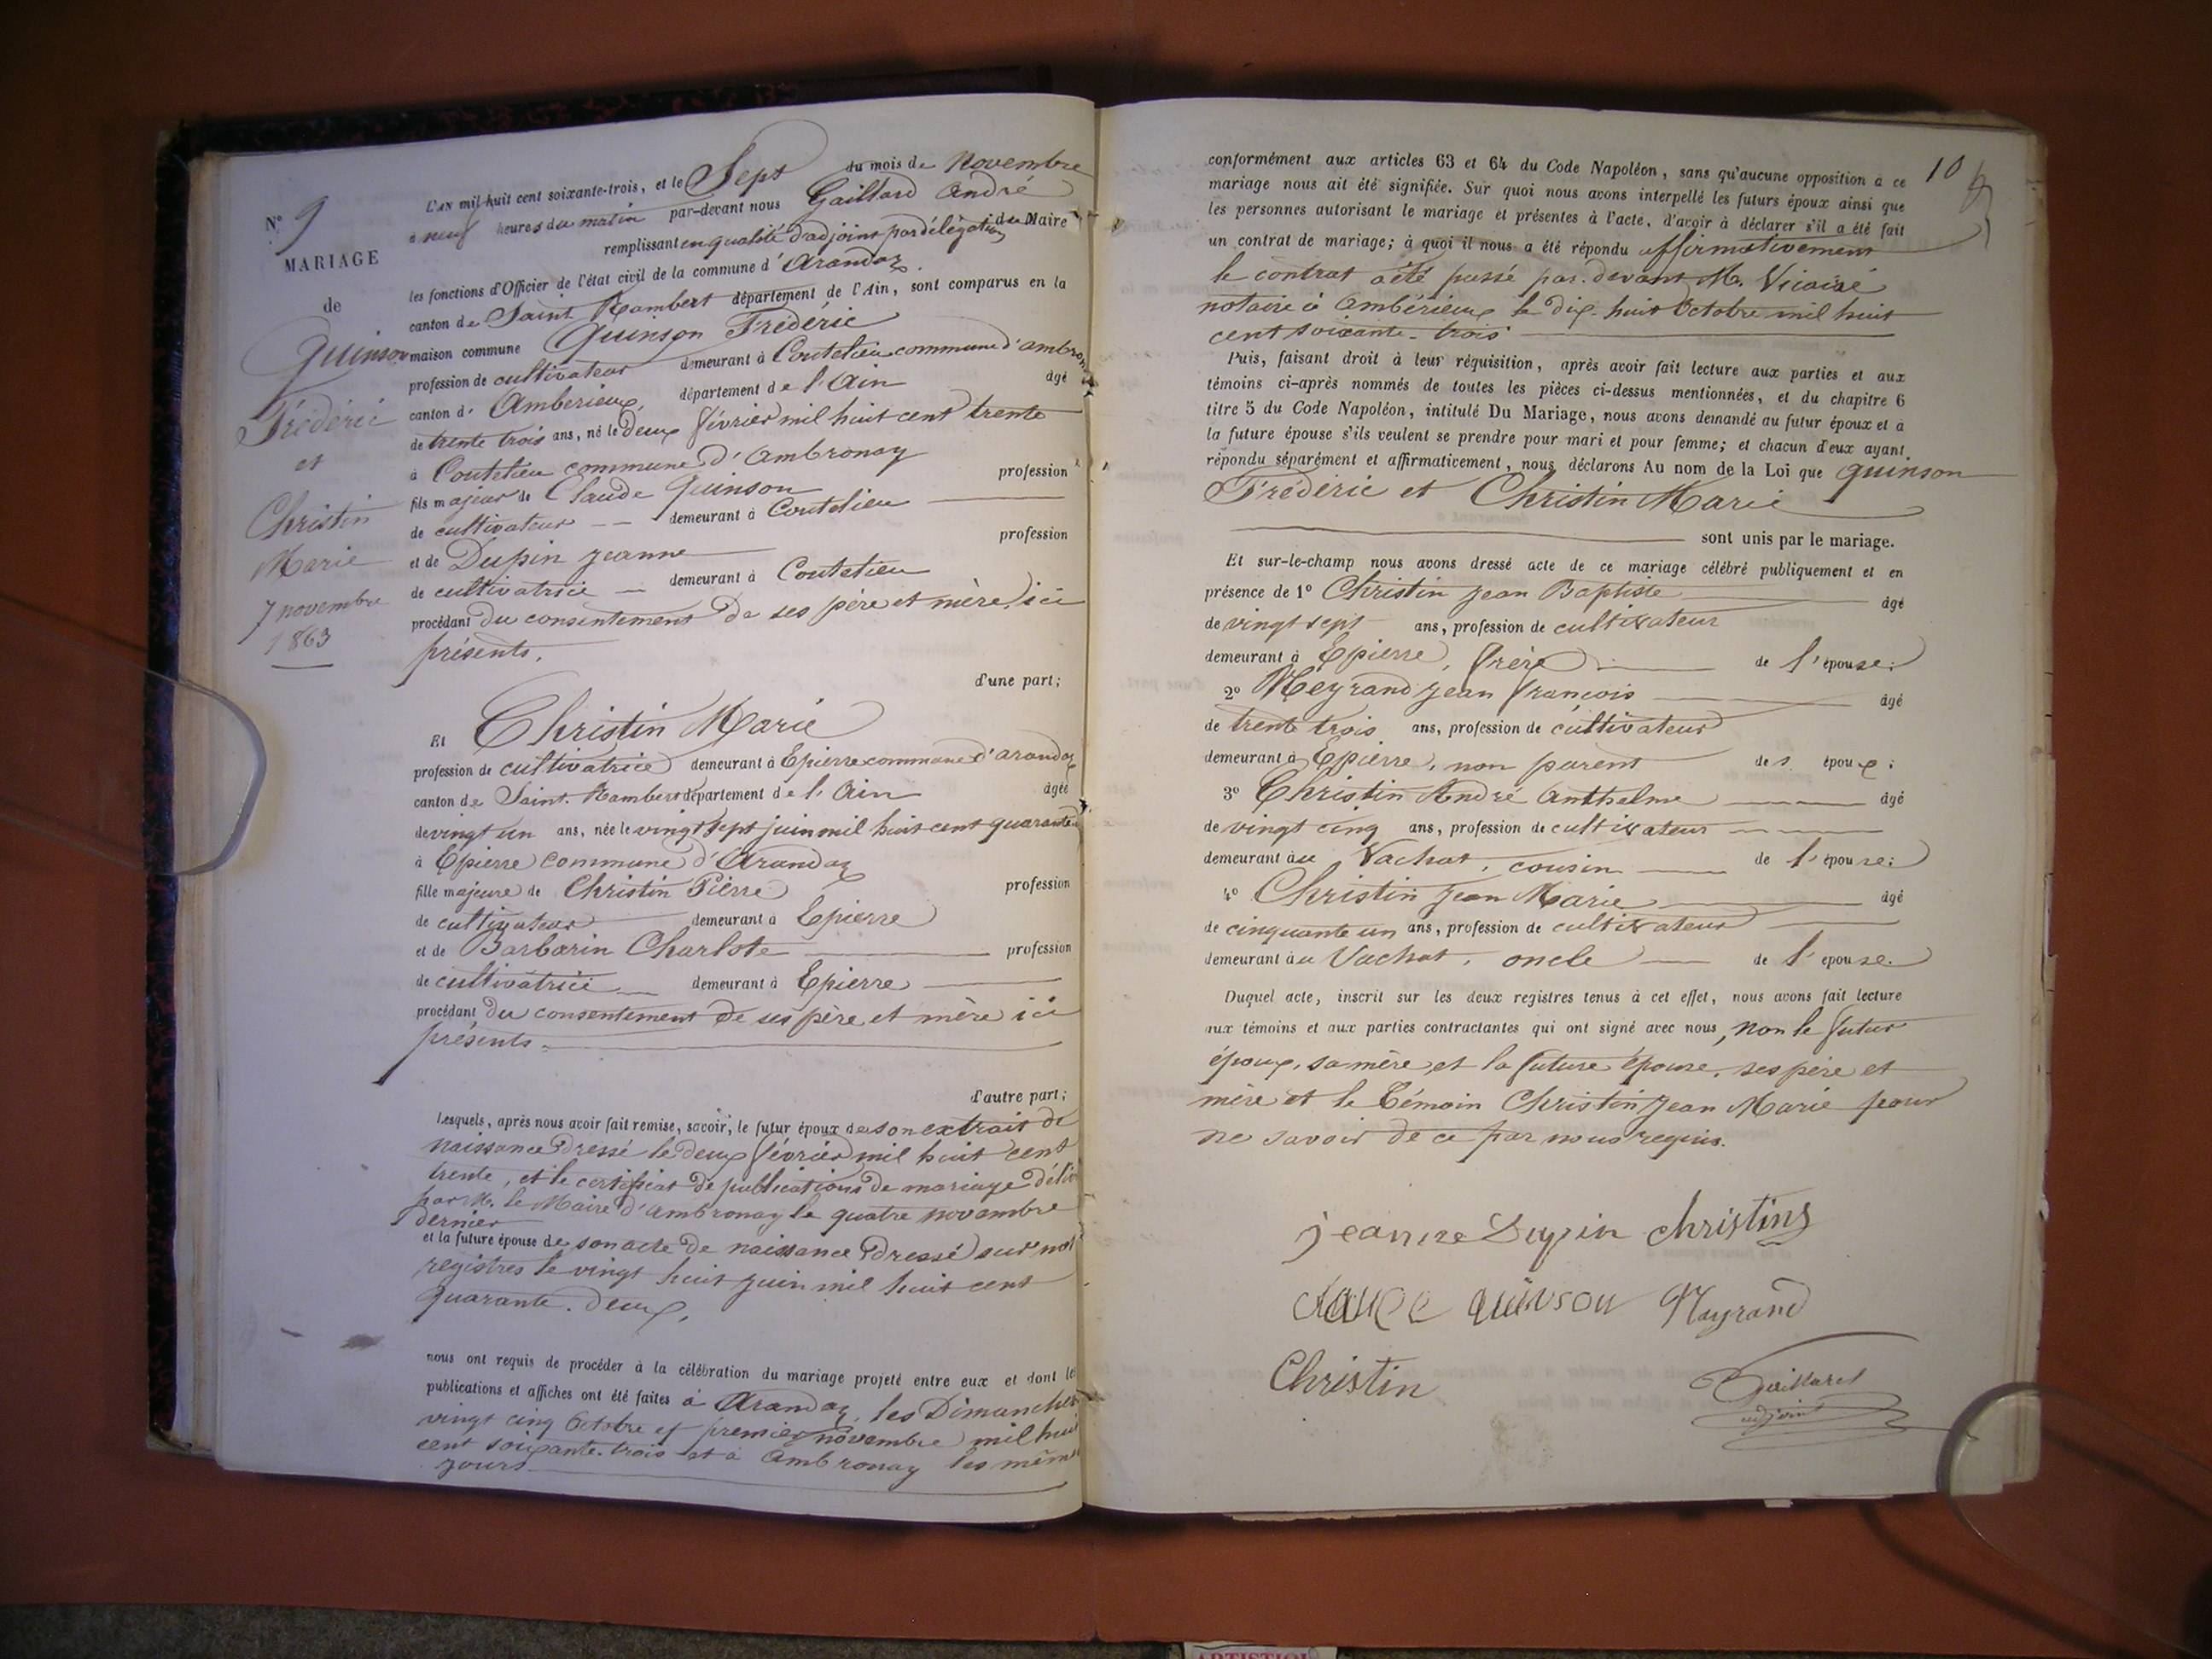 N° 9
MARIAGE
de
Quinson
Frédéric
et
Christin
Marie
7 novembre
1863
L'AN mil huit cent soixante-trois, et le Sept du mois de Novembre
à neuf heures du matin par-devant nous Gaillard André
remplissant en qualité d'adjoint par délégation du Maire
les fonctions d'Officier de l'état civil de la commune d'Arandaz
canton de Saint Rambert département de l'Ain, sont comparus en la
maison commune Quinson Frédéric
profession de cultivateur demeurant à Coutelieu commune d'ambronay
canton d'Amberieux département de l'Ain âgé
de trente trois ans, né le deux février mil huit cent trente
à Coutelieu commune d'Ambronay
fils majeur de Claude Quinson profession
de cultivateur demeurant à Coutelieu
et de Dupin Jeanne profession
de cultivatrice demeurant à Coutelieu
procédant du consentement de ses père et mère ici
présents.
d'une part;
Et Christin Marie
profession de cultivatrice demeurant à Epierre commune d'arandaz
canton de Saint-Rambert département de l'Ain âgée
de vingt un ans, née le vingt sept juin mil huit cent quarante
à Epierre commune d'Arandaz
fille majeure de Christin Pierre profession
de cultivateur demeurant à Epierre
et de Barbarin Charlote profession
de cultivatrice demeurant à Epierre
procédant du consentement de ses père et mère ici
présents.
d'autre part;
Lesquels, après nous avoir fait remise, savoir, le futur époux de son extrait de
naissance dressé le deux février mil huit cent
trente, et le certificat de publications de mariage déliv
par M. le Maire d'ambronay le quatre novembre
dernier
et la future épouse de son acte de naissance dressé sur nos
registres le vingt huit juin mil huit cent
quarante-deux,
nous ont requis de procéder à la célébration du mariage projeté entre eux et dont les
publications et affiches ont été faites à Arandaz, les Dimanches
vingt cinq Octobre et premier novembre mil huit
cent soixante-trois et à Ambronay les mêmes
jours
10
conformément aux articles 63 et 64 du Code Napoléon, sans qu'aucune opposition à ce
mariage nous ait été signifiée. Sur quoi nous avons interpellé les futurs époux ainsi que
les personnes autorisant le mariage et présentes à l'acte, d'avoir à déclarer s'il a été fait
un contrat de mariage; à quoi il nous a été répondu affirmativement
le contrat a été passé par-devant M. Vicaire
notaire à Ambérieux le dix-huit Octobre mil huit
cent soixante-trois
Puis, faisant droit à leur réquisition, après avoir fait lecture aux parties et aux
témoins ci-après nommés de toutes les pièces ci-dessus mentionnées, et du chapitre 6
titre 5 du Code Napoléon, intitulé Du Mariage, nous avons demandé au futur époux et à
la future épouse s'ils veulent se prendre pour mari et pour femme; et chacun d'eux ayant
répondu séparément et affirmativement, nous déclarons Au nom de la Loi que Quinson
Frédéric et Christin Marie
sont unis par le mariage.
Et sur-le-champ nous avons dressé acte de ce mariage célébré publiquement et en
présence de 1° Christin Jean Baptiste âgé
de vingt sept ans, profession de cultivateur
demeurant à Epierre, frère de l'épouse;
2° Meyrand Jean françois âgé
de trente trois ans, profession de cultivateur
demeurant à Epierre, non parent des époux;
3° Christin André Anthelme âgé
de vingt cinq ans, profession de cultivateur
demeurant au Vachat, cousin de l'épouse;
4° Christin Jean Marie âgé
de cinquante un ans, profession de cultivateur
demeurant au Vachat, oncle de l'épouse.
Duquel acte, inscrit sur les deux registres tenus à cet effet, nous avons fait lecture
aux témoins et aux parties contractantes qui ont signé avec nous, non le futur
époux, sa mère, et la future épouse, ses père et
mère et le témoin Christin Jean Marie pour
ne savoir de ce par nous requis.
jeanne Dupin christin
claude quinson Mayrand
Christin Gaillard
adjoint